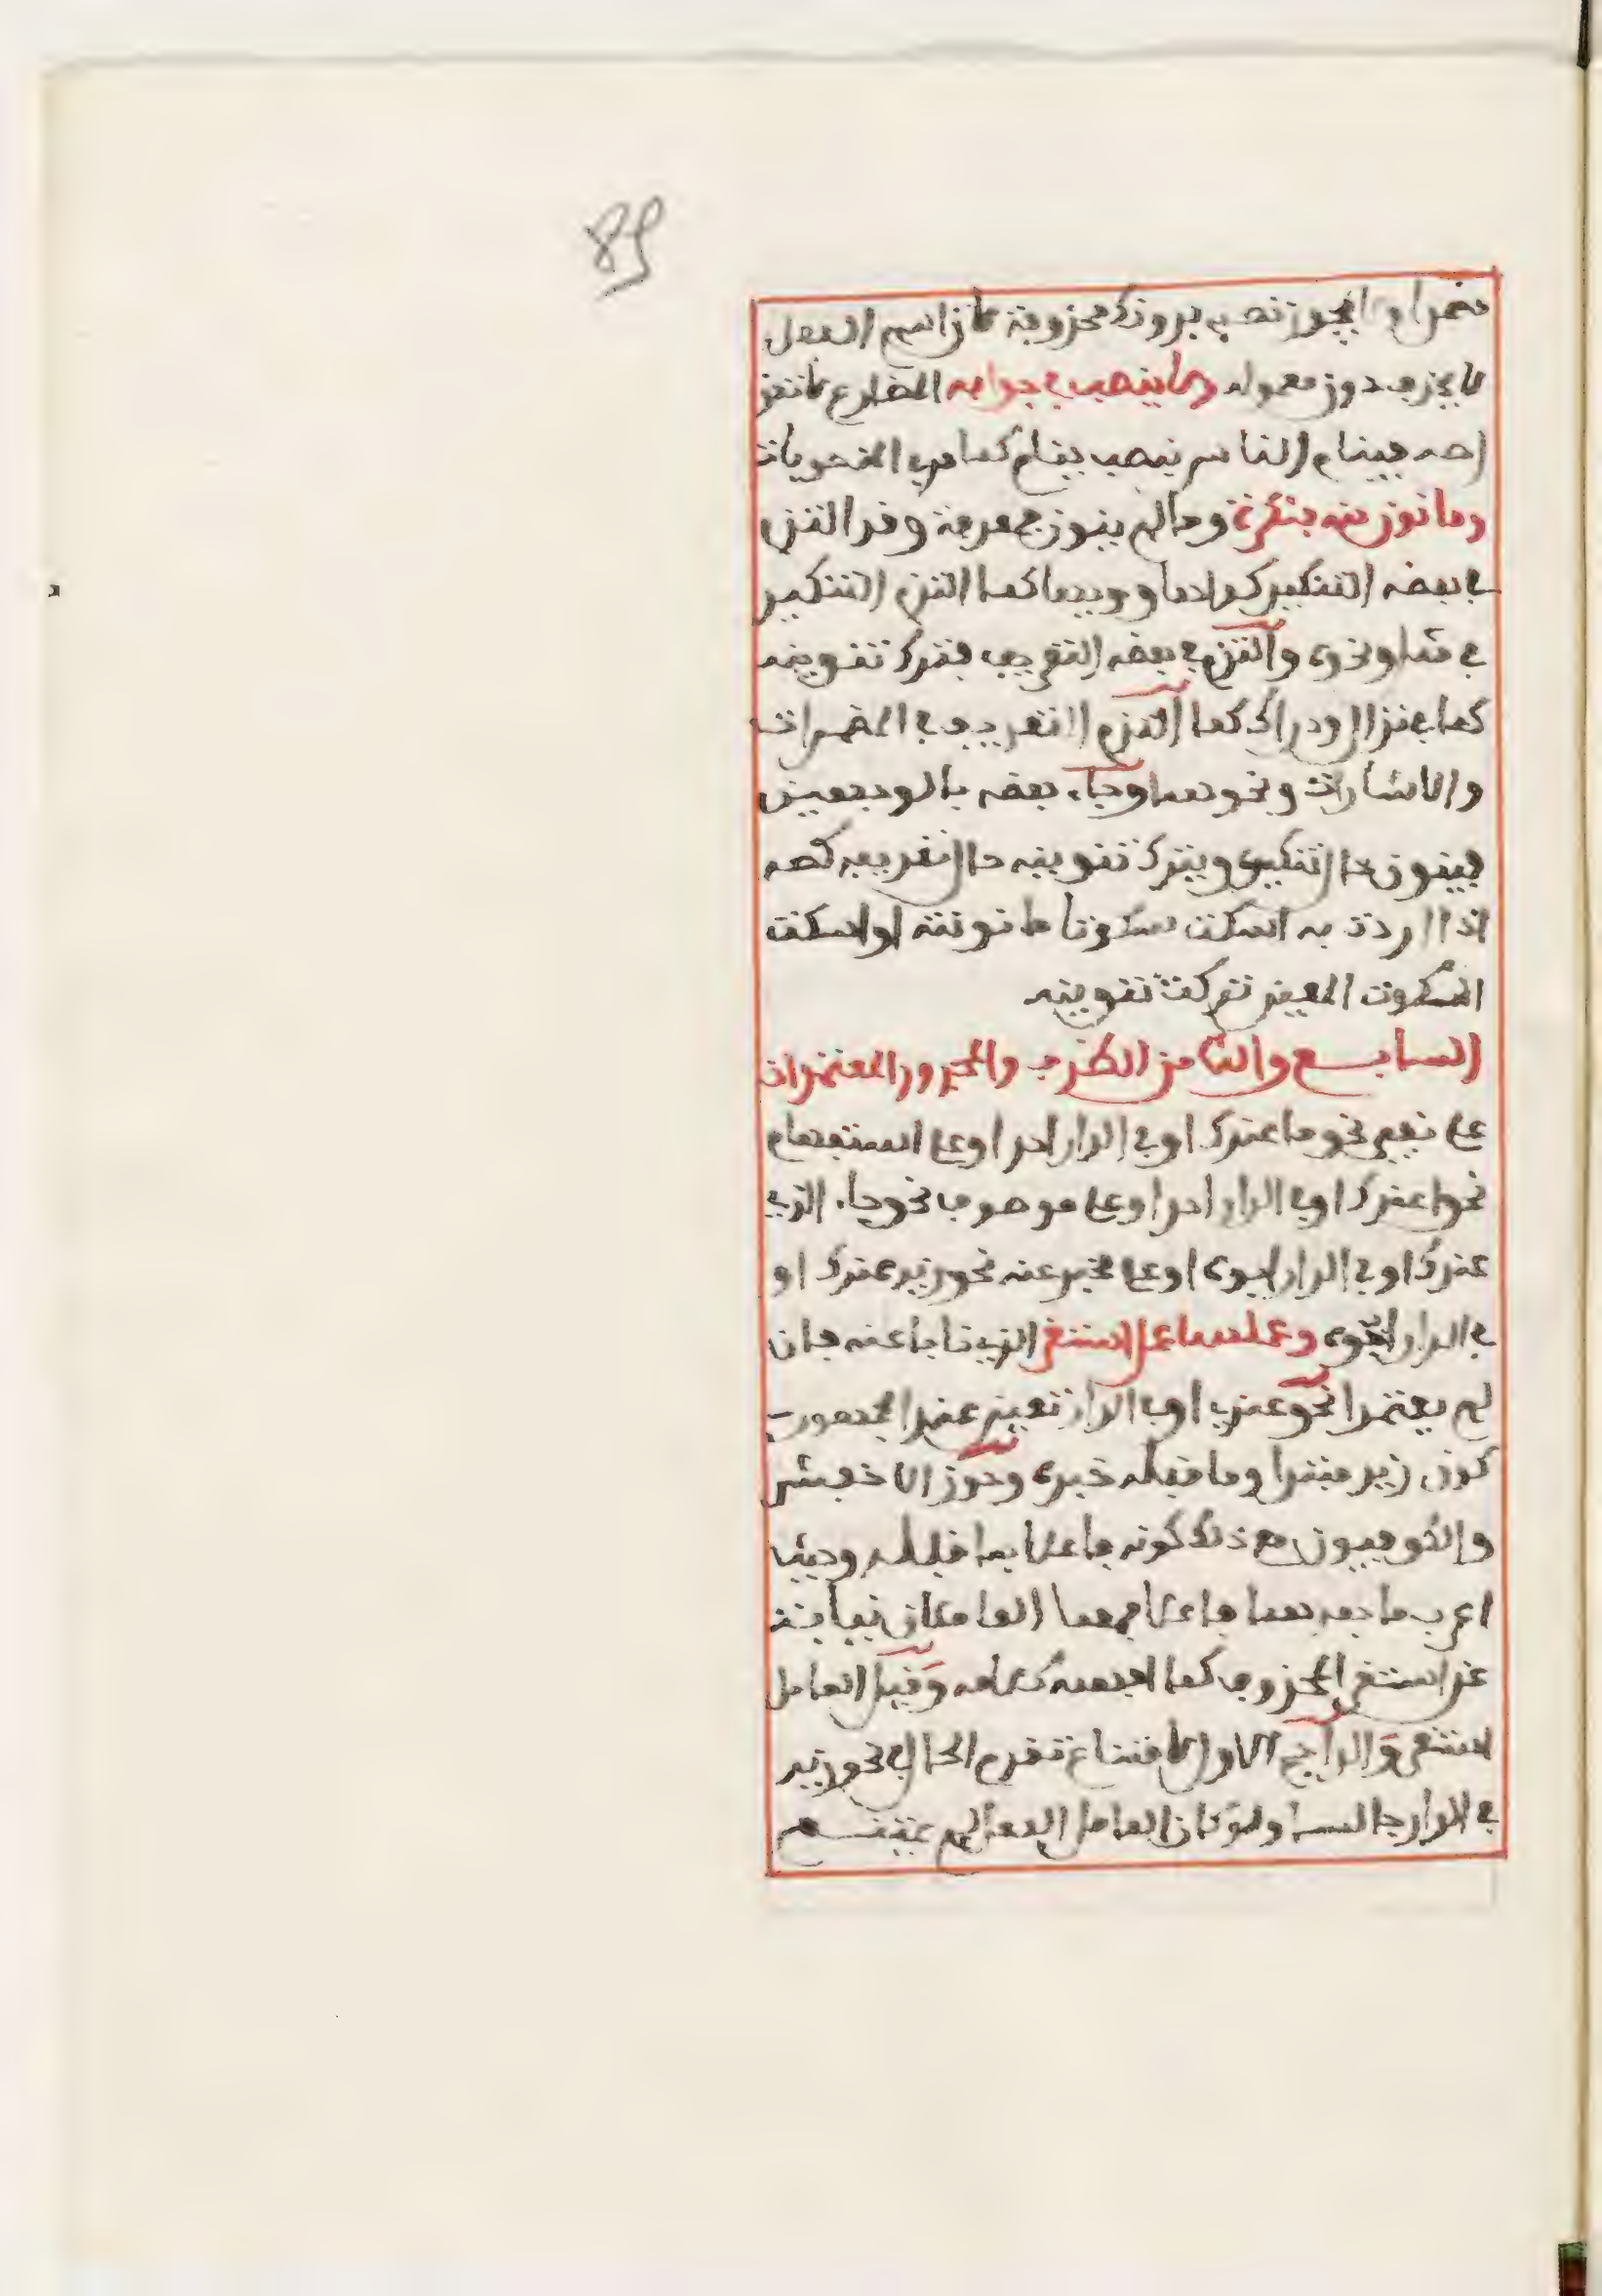 89
مضمرا ولا يجوز نصب برونك محذوفة لان اسم الفعل
لا يحذف دون معموله ولا ينصب في جوابه المضارع لا تقل
صه فينام الناس بنصب ينام كما في المحويات
وما نون منه بنكرة وما لم ينون بمعرفة وقد التزم
في بعضه التنكير كواها وويها كما التزم التنكير
في نحوه والتزم في بعضه التعريف فترك تنوينه
كما في نزال ودراك كما التزم التعريف في المضمرات
والاشارات ونحوهما وجاء بعضه بالوجهين
فينون حال تنكيره ويترك تنوينه حال تعريفه كصه
اذا اردت به اسكت سكوتا ما نونته او اسكت
السكوت المعين تركت تنوينه
السابع والثامن الظرف والمجرور المعتمدان
على نفي نحو ما عندك او في الدار احد او على استفهام
نحو اعندك او في الدار احد او على موصوف نحو جاء الذي
عندك او في الدار ابوه او على مخبر عنه نحو زيد عندك او
في الدار اخوه وعملهما عمل استقر الذي نابا عنه فان
لم يعتمدا نحو عندي او في الدار تعين عند الجمهور
كون زيد مبتدا وما قبله خبره وجوز الاخفش
والكوفيون مع ذلك كونه فاعلا بما قبله وحيث
اعرب ما بعدهما فاعلا فهما العاملان نيابة
عن استقر المحذوف كما افهمه كلامه وقيل العامل
استقر والراجح الاول لامتناع تقدم الحال في نحو زيد
في الدار جالسا ولو كان العامل الفعل لم يمتنع